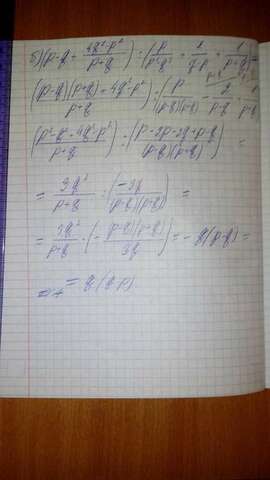 б) (p-q + (4q²-p²)/(p+q)) : (p/(p²-q²) + 2/(q-p) + 1/(p+q)) =
((p-q)(p+q)+4q²-p²)/(p+q) : (p/((p-q)(p+q)) - 2/(p-q) + 1/(p+q))
((p²-q²+4q²-p²)/(p+q)) : ((p-2p-2q+p-q)/((p-q)(p+q))) =
= 3q²/(p+q) : (-3q/((p-q)(p+q))) =
= 3q²/(p+q) · (-(p-q)(p+q)/3q) = -q(p-q) =
= q(q-p).